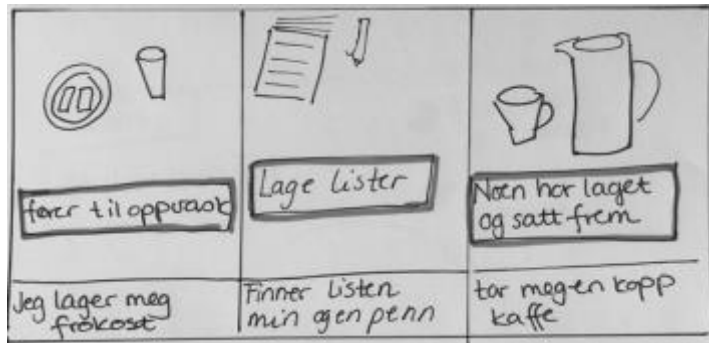 fører til oppvask
Jeg lager meg
frokost
Lage lister
Finner Listen
min og en penn
Noen har laget
og satt frem
tar meg en kopp
kaffe